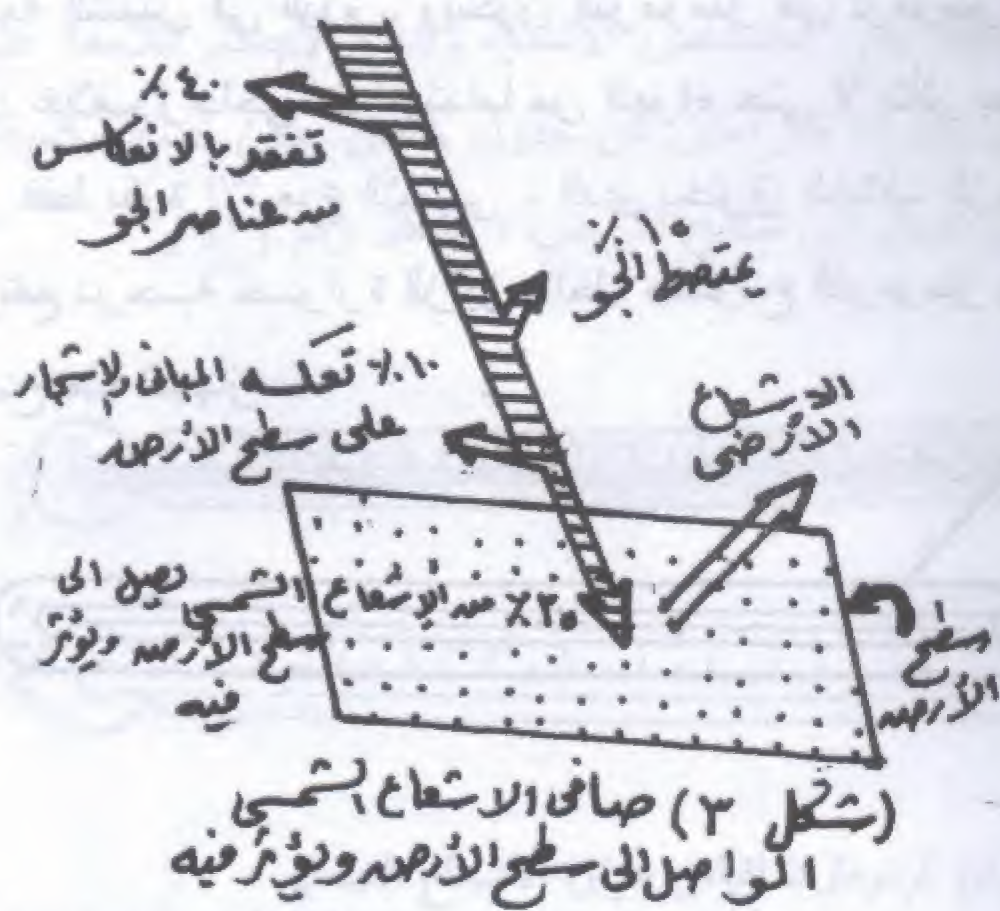 ٤٠٪
تفقد بالانعكاس
من عناصر الجو
١٥٪
يمتصها الجو
١٠٪ تعكسه المبانى والاشجار
على سطح الأرض
الاشعاع
الأرضى
٣٥٪ من الإشعاع الشمسى يصل الى
سطح الأرض ويؤثر
فيه
سطح
الأرض
(شكل ٣) صافى الاشعاع الشمسى
الواصل الى سطح الأرض ويؤثر فيه